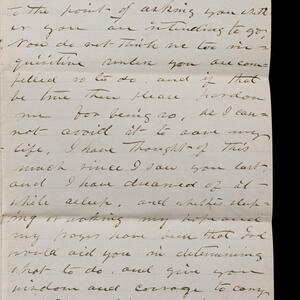 to the point of asking you wheth-
er you are intending to go.
Now do not think me too in-
quisitive unless you are com-
pelled so to do and if that
be true then please pardon
me for being so, as I can-
not avoid it to save my
life. I have thought of this
much since I saw you last
and I have dreamed of it
while asleep, and whether sleep-
ing or waking my hope and
my prayer have been that God
would aid you in determining
what to do, and give you
wisdom and courage to carry